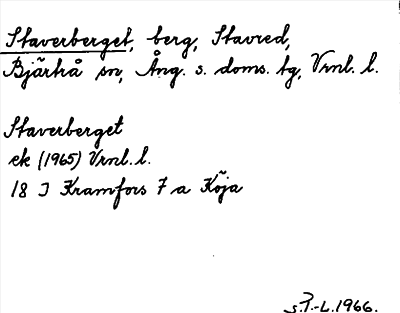 Staverberget, berg, Stavred,
Bjärtrå sn, Ång. s. doms. tg, Vrnl. l.
Staverberget
ek (1965) Vrnl. l.
18 J Kramfors 7 a Köja
1966.